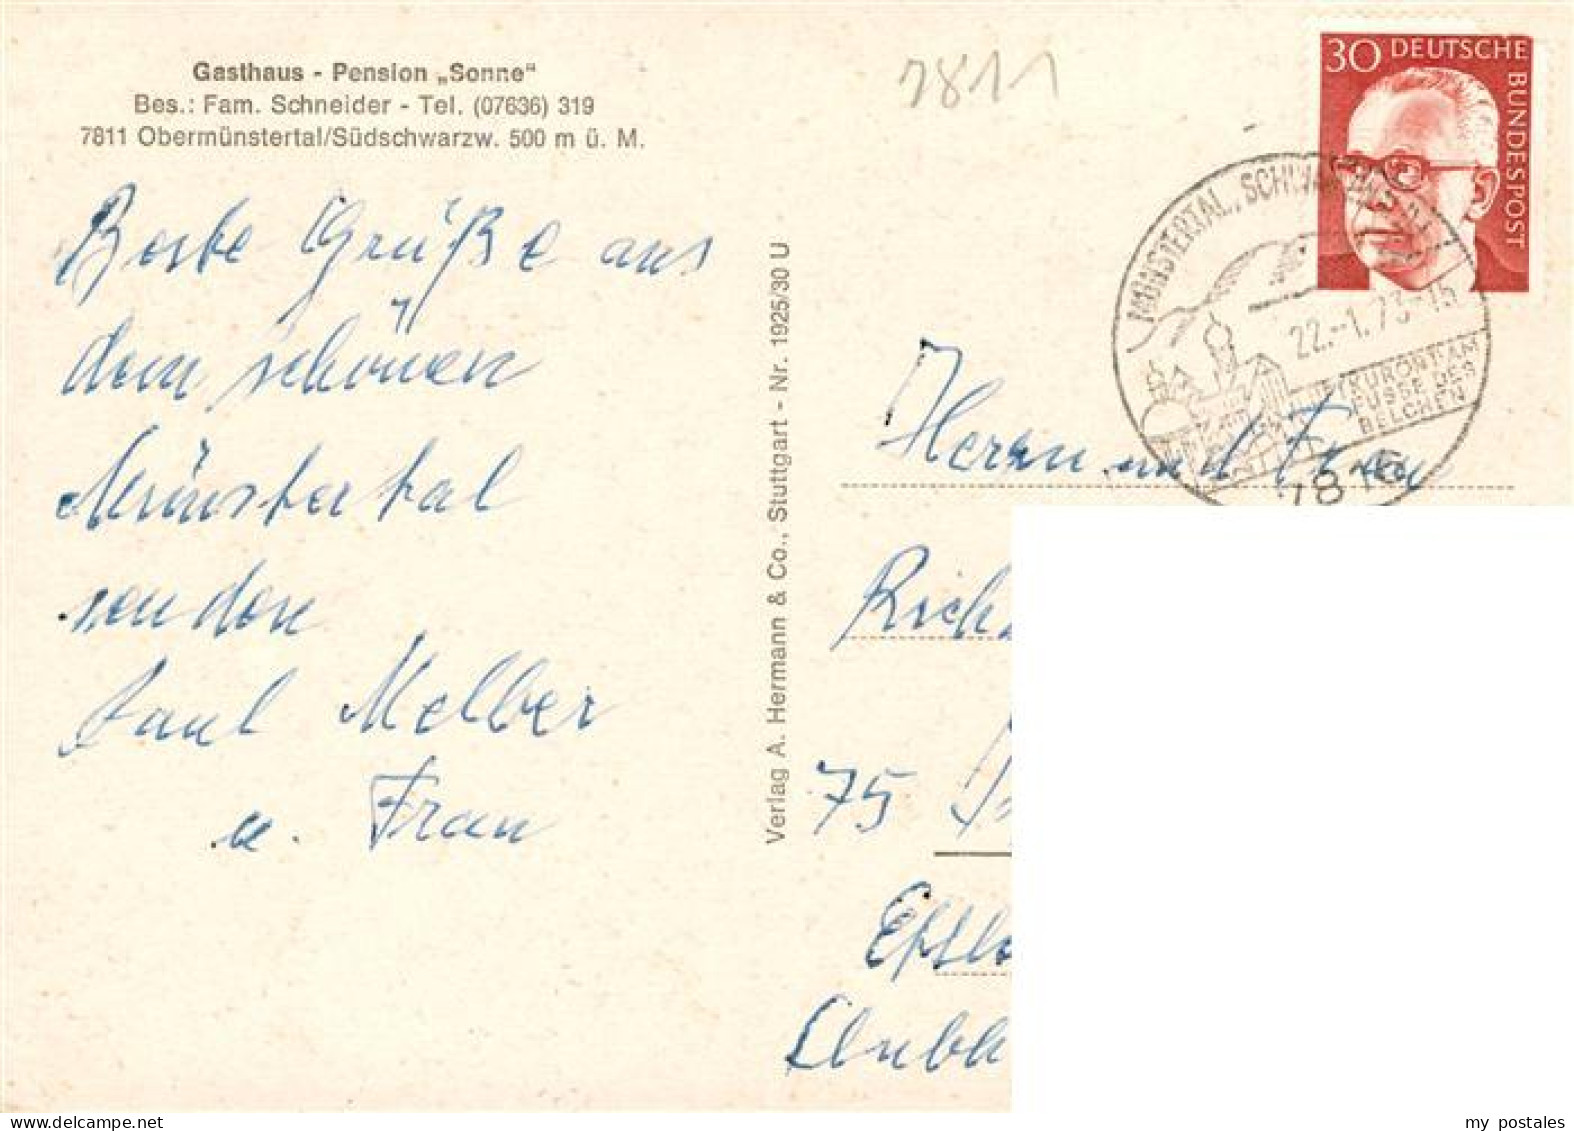 Gasthaus - Pension „Sonne"
Bes.: Fam. Schneider - Tel. (07636) 319
7811 Obermünstertal/Südschwarzw. 500 m ü. M.
7811
30 DEUTSCHE BUNDESPOST
MÜNSTERTAL, SCHWARZW.
22.-1.73-15
KURORT AM
FUSSE DES
BELCHEN
7816
Beste Grüße aus
dem schönen
Münstertal
senden
Paul Melber
u. Frau
Verlag A. Hermann & Co., Stuttgart - Nr. 1925/30 U
Herrn und Frau
Rich
75
Clubh
my postales